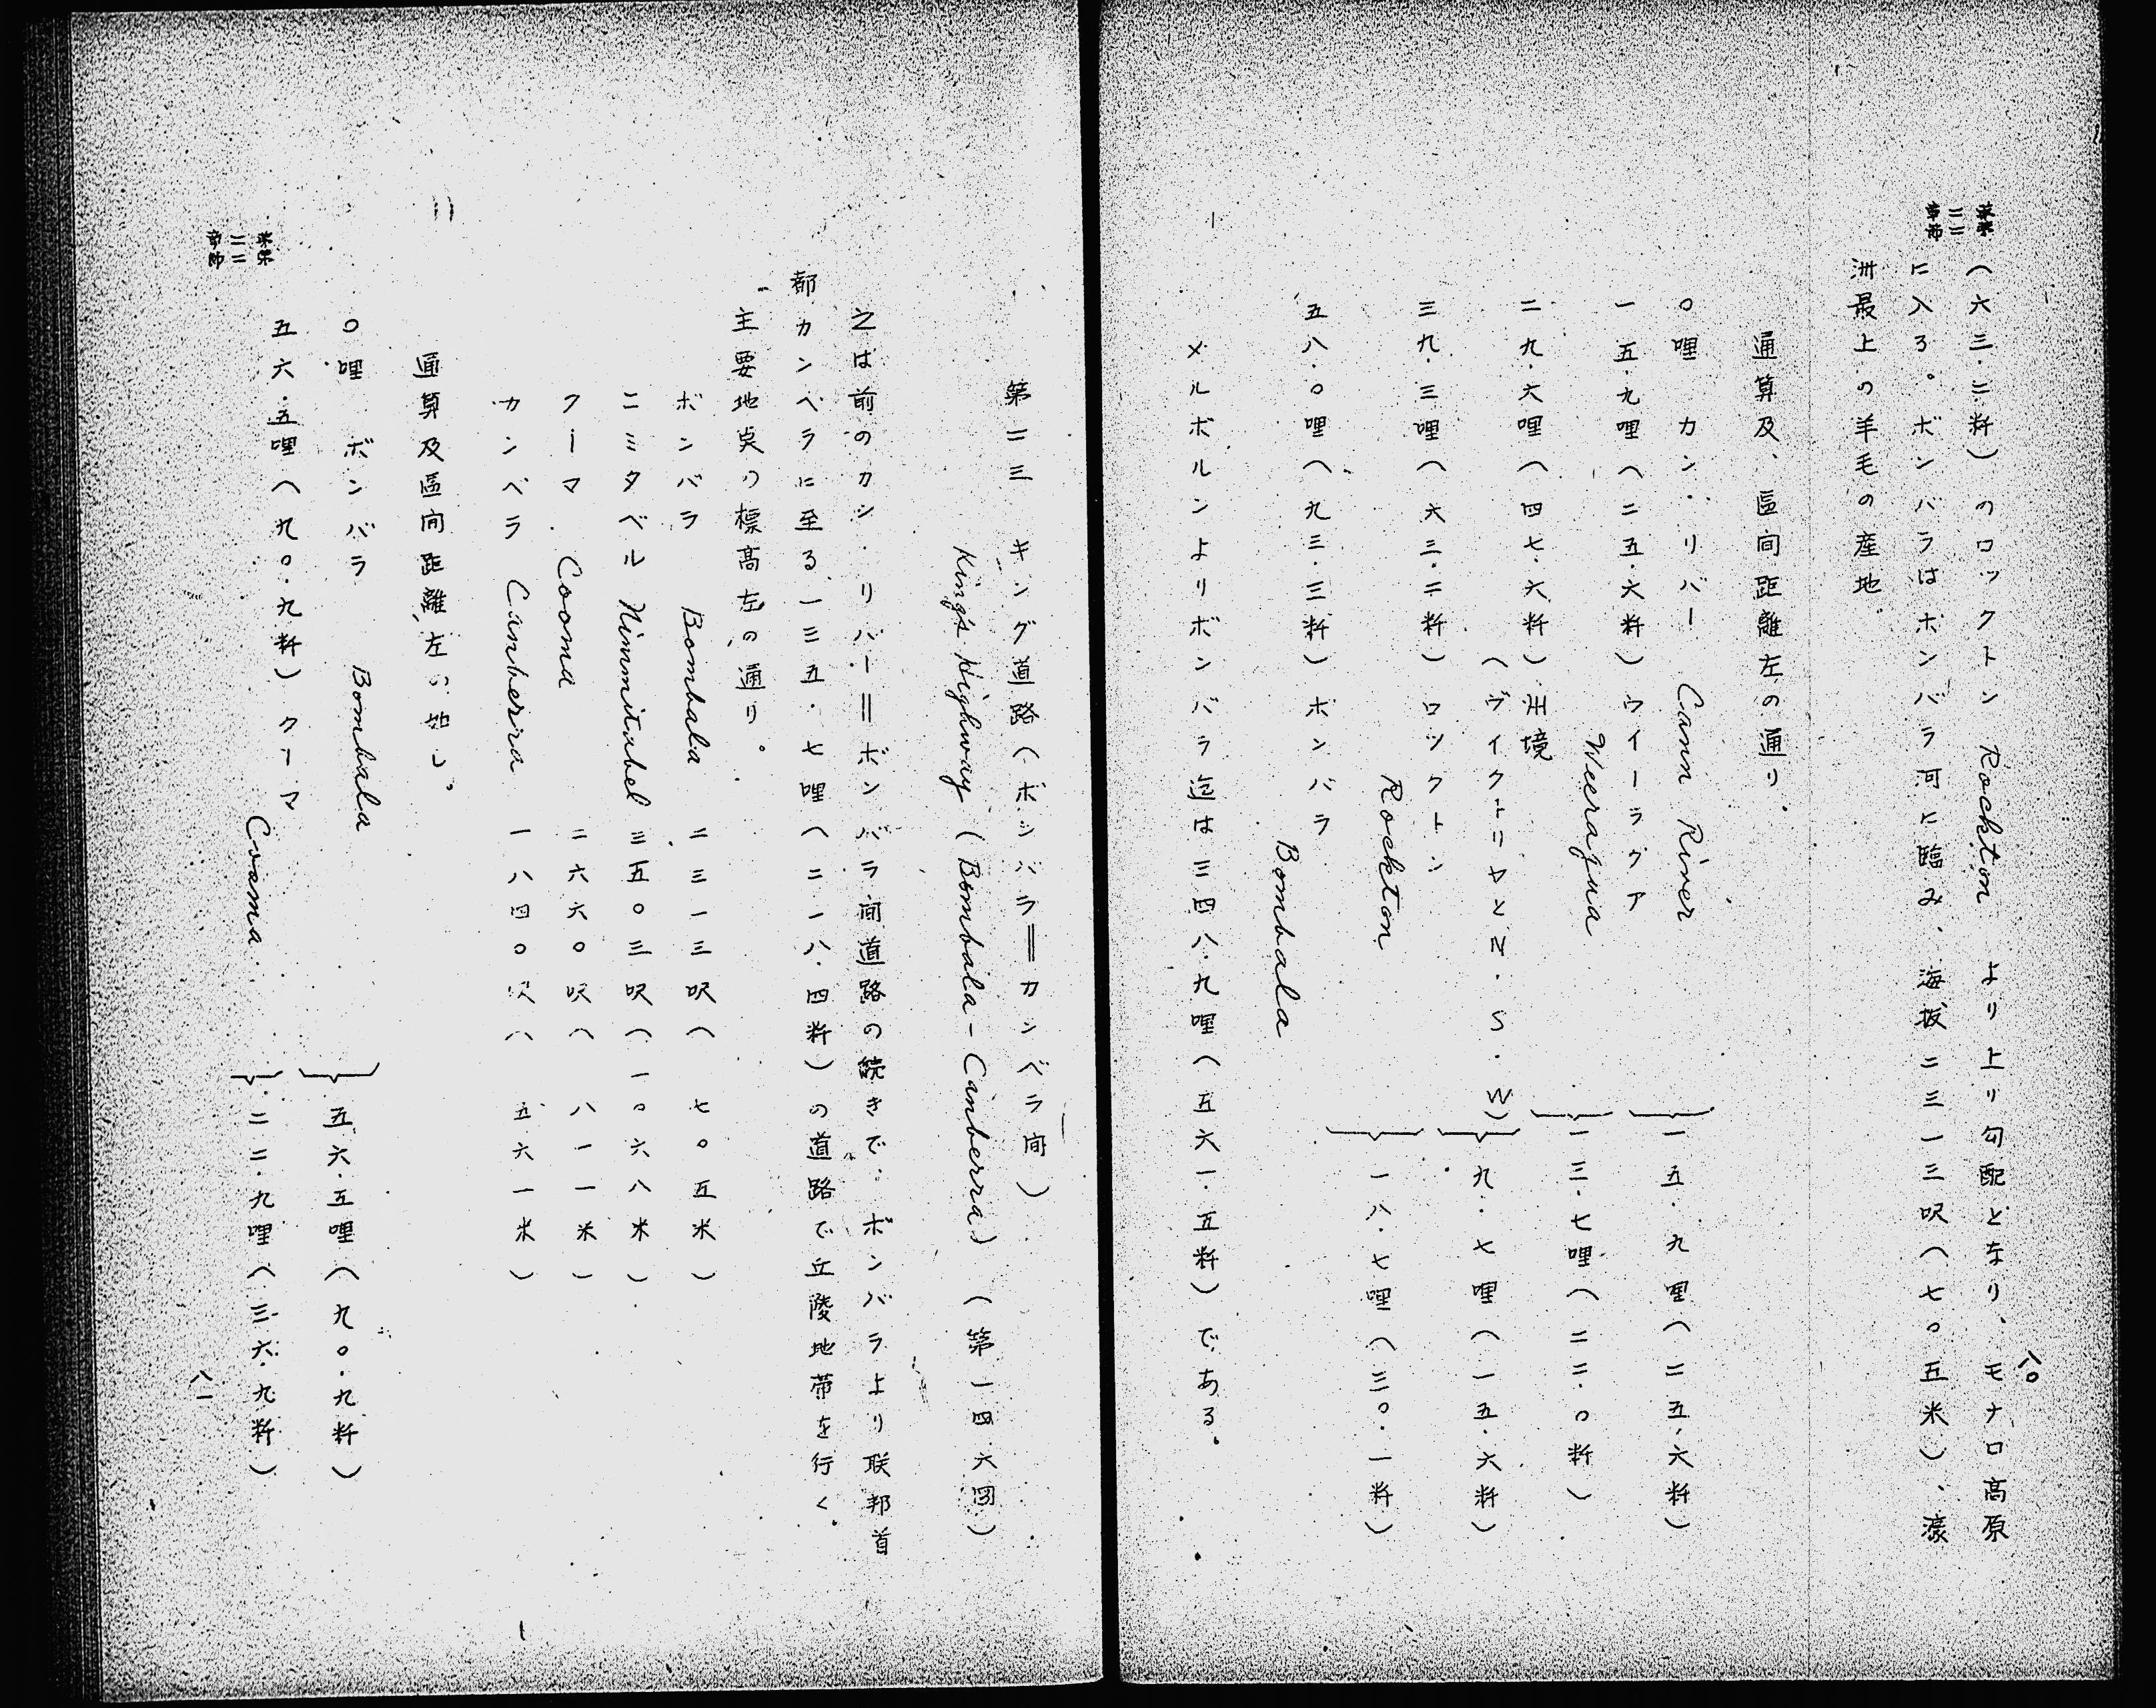 八〇
（六三・二粁）のロックトン Rockton より上り勾配となり、モナロ高原
に入る。ボンバラはボンバラ河に臨み、海抜二三一三呎（七〇五米）、濠
洲最上の羊毛の産地
通算及、區间距離左の通り.
〇哩 カン・リバー Cann River
一五・九哩（二五・六粁）ウイーラクア
Weeragua
二九・六哩（四七・六粁）州境
（ヴイクトリヤとN.S.W）
三九・三哩（六三・二粁）ロックトン
Rockton
五八・〇哩（九三・三粁）ボンバラ
Bombala
一五・九哩（二五・六粁）
一三・七哩（二二・〇粁）
九・七哩（一五・六粁）
一八・七哩（三〇・一粁）
メルボルンよりボンバラ迄は三四八・九哩（五六一・五粁）である.
第二三 キング道路（ボンバラ＝カンベラ间）
King's Highway (Bombala - Canberra)（第一四六図）
之は前のカン・リバー＝ボンバラ间道路の続きで、ボンバラより联邦首
都カンベラに至る一三五・七哩（二一八・四粁）の道路で丘陵地帯を行く.
主要地点の標高左の通り。
ボンバラ Bombala 二三一三呎（七〇五米）
ニミタベル Nimmitabel 三五〇三呎（一〇六八米）
クーマ Cooma 二六六〇呎（八一一米）
カンベラ Canberra 一八四〇呎（五六一米）
通算及區间距離左の如し。
〇哩 ボンバラ Bombala
五六・五哩（九〇・九粁）クーマ
Cooma
五六・五哩（九〇・九粁）
二二・九哩（三六・九粁）
八一